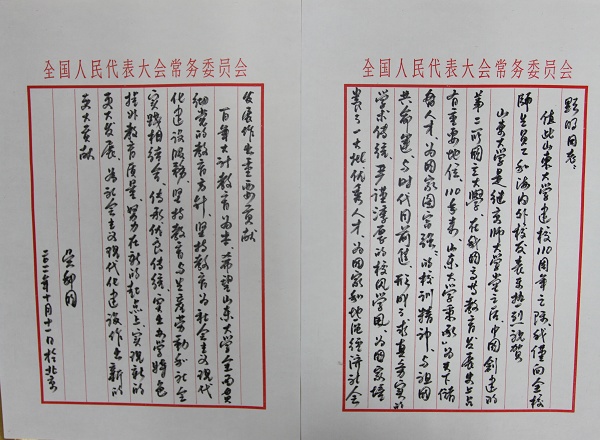 全国人民代表大会常务委员会
显明同志：
值此山东大学建校110周年之际，我谨向全校
师生员工和海内外校友表示热烈祝贺
山东大学是继京师大学堂之后中国创建的
第二所国立大学，在我国高等教育发展史上占
有重要地位。110年来，山东大学秉承“为天下储
人才，为国家图富强”的校训精神，与祖国
共命运，与时代同前进，形成了求真务实的
学术传统，严谨淳厚的校风学风，为国家培
养了一大批优秀人才，为国家和地区经济社会
全国人民代表大会常务委员会
发展作出重要贡献
百年大计教育为本。希望山东大学全面贯
彻党的教育方针，坚持教育为社会主义现代
化建设服务，坚持教育与生产劳动和社会
实践相结合，传承优良传统，突出办学特色
提升教育质量，努力在新的起点上实现新的
更大发展，为社会主义现代化建设作出新的
更大贡献
吴邦国
二〇一一年十月十一日于北京